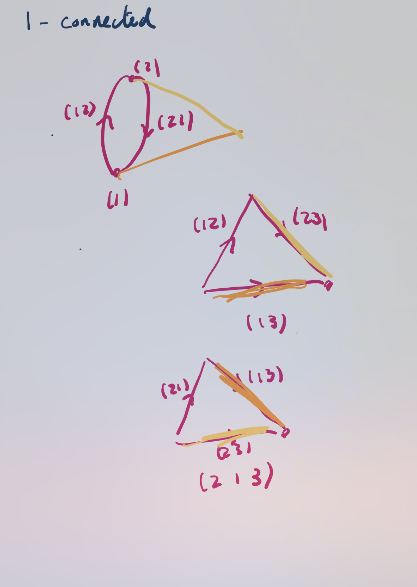 1 - connected
(2)
(12)
(21)
(1)
(12)
(23)
(13)
(21)
(13)
(23)
(2 1 3)